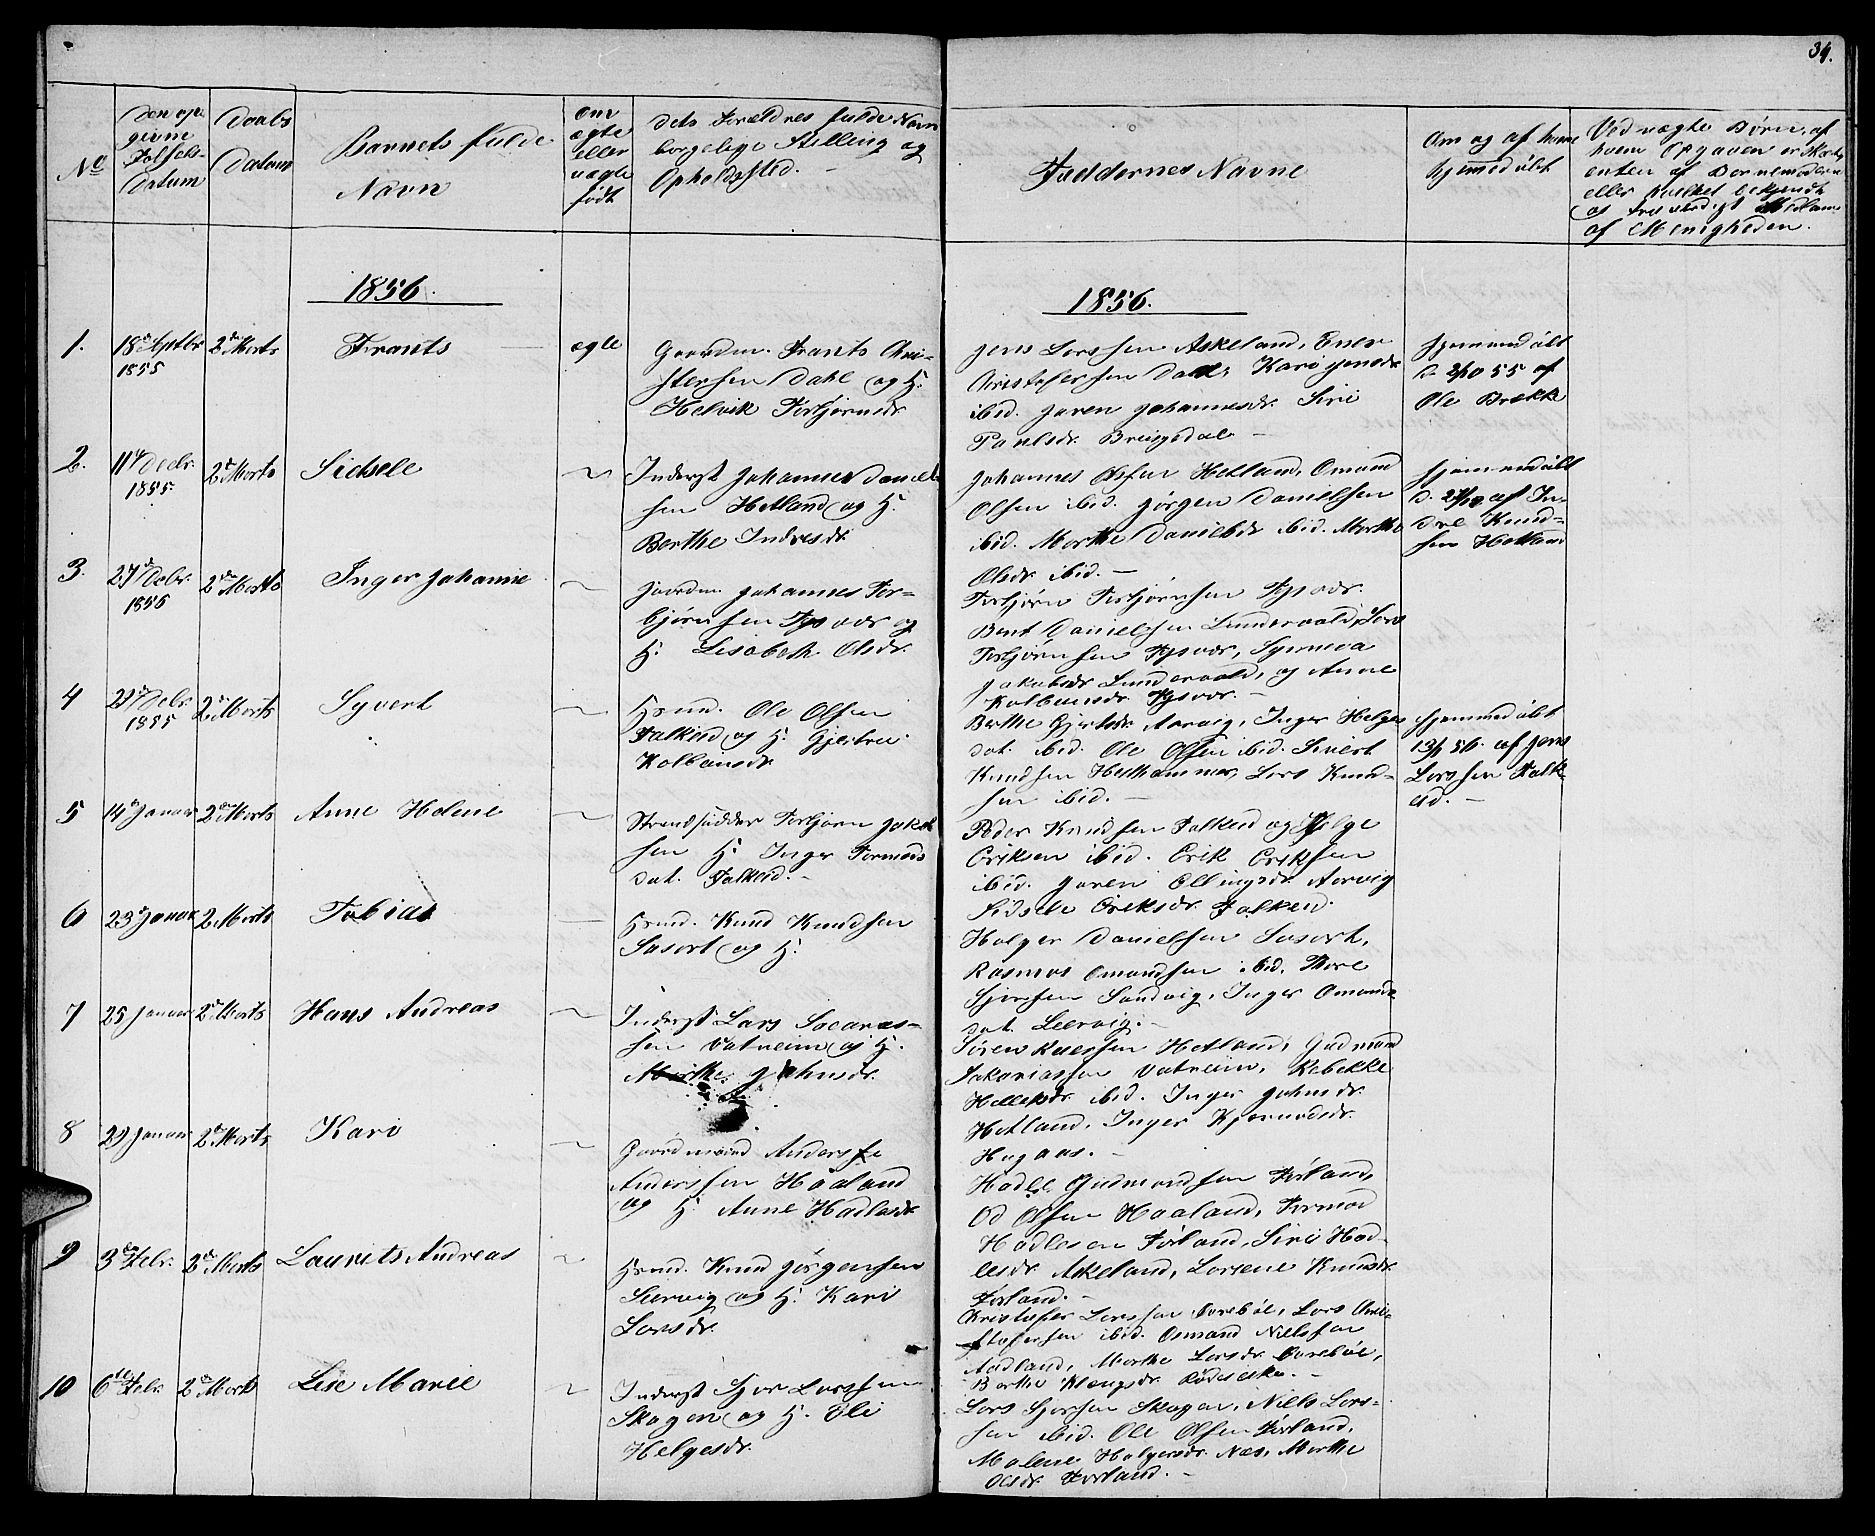 34.
No
Den op-
givne
Fødsels-
Datum
Daabs
Datum
Barnets fulde
Navn
Om
ægte
eller
uægte
født
Dets Forældres fulde Navn
borgelige Stilling og
Opholdssted.
Faddernes Navne
Om og af hvem
hjemmedøbt
Ved uægte Børn, af
hvem Opgaven er skeet,
enten af Barnemoderen
eller hvilket bekjendt
og troværdigt Medlem
af Menigheden.
1856.
1856.
1.
18de Septbr
1855
2den Marts
Frants
ægte
Gaardm. Frants Chri-
stensen Dahl og H.
Helvik Torbjørnsdr
Jens Larssen Askeland, Ener
Christofersen Dahl, Kari Jensdr
ibid. Gøren Johannesdr. Siri
Paulsdr. Bringedal
Hjemmedøbt
d. 2/10 55 af
Ole Brekke
2.
11te Decbr.
1855.
2den Marts
Sidsele
Inderst Johannes Daniel-
sen Hetland og H.
Berthe Indresdr
Johannes Olsen Hetland, Omund
Olsen ibid. Jørgen Danielsen
ibid. Marthe Danielsdr ibid. Marthe
Olsdr ibid.
Hjemmedøbt
af In-
dre Knud-
sen Hetland
3.
27de Debr.
1856
2den Marts
Inger Johanne
Gaardm. Johannes Tor-
bjørnsen Tysvær og
H. Lisabeth Olsdr.
Torbjørn Torbjørnsen Tysvær.
Bent Danielsen Lundervald, Lars
Torbjørnsen Tysvær, Synneva
Jakobsdr Lundervald, og Anne
Kolbensdr. Tysvær.
4
29de Debr.
1855
2den Marts
Syvert
Hsmd. Ole Olsen
Falkeid og H. Gjertru
Kolbensdr
Berthe Gjertsdr. Aarvig, Inger Helges
dat. ibid. Ole Olsen ibid. Sivert
Knudsen Hesthammer, Lars Knud-
sen ibid.
Hjemmedøbt
13/1 56. af Jens
Larssen Falk-
eid.
5
14de Januar
2den Marts
Anne Helene
Strandsidder Torbjørn Jakob-
sen H. Inger Tormods
dat. Falkeid.
Peder Knudsen Falkeid og Helge
Eriksen ibid. Erik Eriksen
ibid. Gøren Ellingsdr. Aarvig
Sidsele Eriksdr. Falkeid.
6
23de Januar
2 Marts
Tobias
Hsmd. Knud Knudsen
Sasort og H.
Holger Danielsen Sasort,
Rasmus Omundsen ibid. Tore
Sjursen Sandvig, Inger Omunds
dat. Leervig.
7
25 Januar
2den Marts
Hans Andreas
Inderst Lars Sacarias-
sen Vatneim og H.
Marthe Johnsdr.
Søren Hetland, Gudmund
Sakariassen Vatneim, Rebekke
ibid. Inger Johnsdr.
Hetland, Inger
Hagaas.
8
29 Januar
2den Marts
Kari
Gaardmand Anders
Anderssen Haaland
og H. Anne Hadlesdr
Hadle Gudmundsen Førland,
Od Olsen Haaland, Tormod
Hadlesen Førland, Siri Had-
lesdr Askeland, Larsene Knudsdr.
Førland.
9
3die Febr.
2den Marts
Laurits Andreas
Hsmd. Knud Jørgensen
Leervig og H. Kari
Larsdr.
Kristofer Larssen Aarebøe, Lars Chri-
stofersen ibid. Osmund Nielssen
Aadland, Marthe Larsdr. Aarebøe,
Berthe Klængsdr.
10
6te Febr.
2den Marts
Lise Marie
Inderst Sjur Larssen
Skogen og H. Eli
Helgesdr.
Lars Sjursen Skogen, Niels Lars-
sen ibid. Ole Olsen Førland,
Malene Holgersdr. Næs, Marthe
Olsdr. Førland.